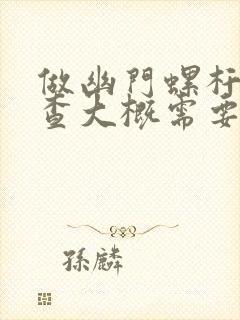 做幽門螺杆
查大概需要
孫麟